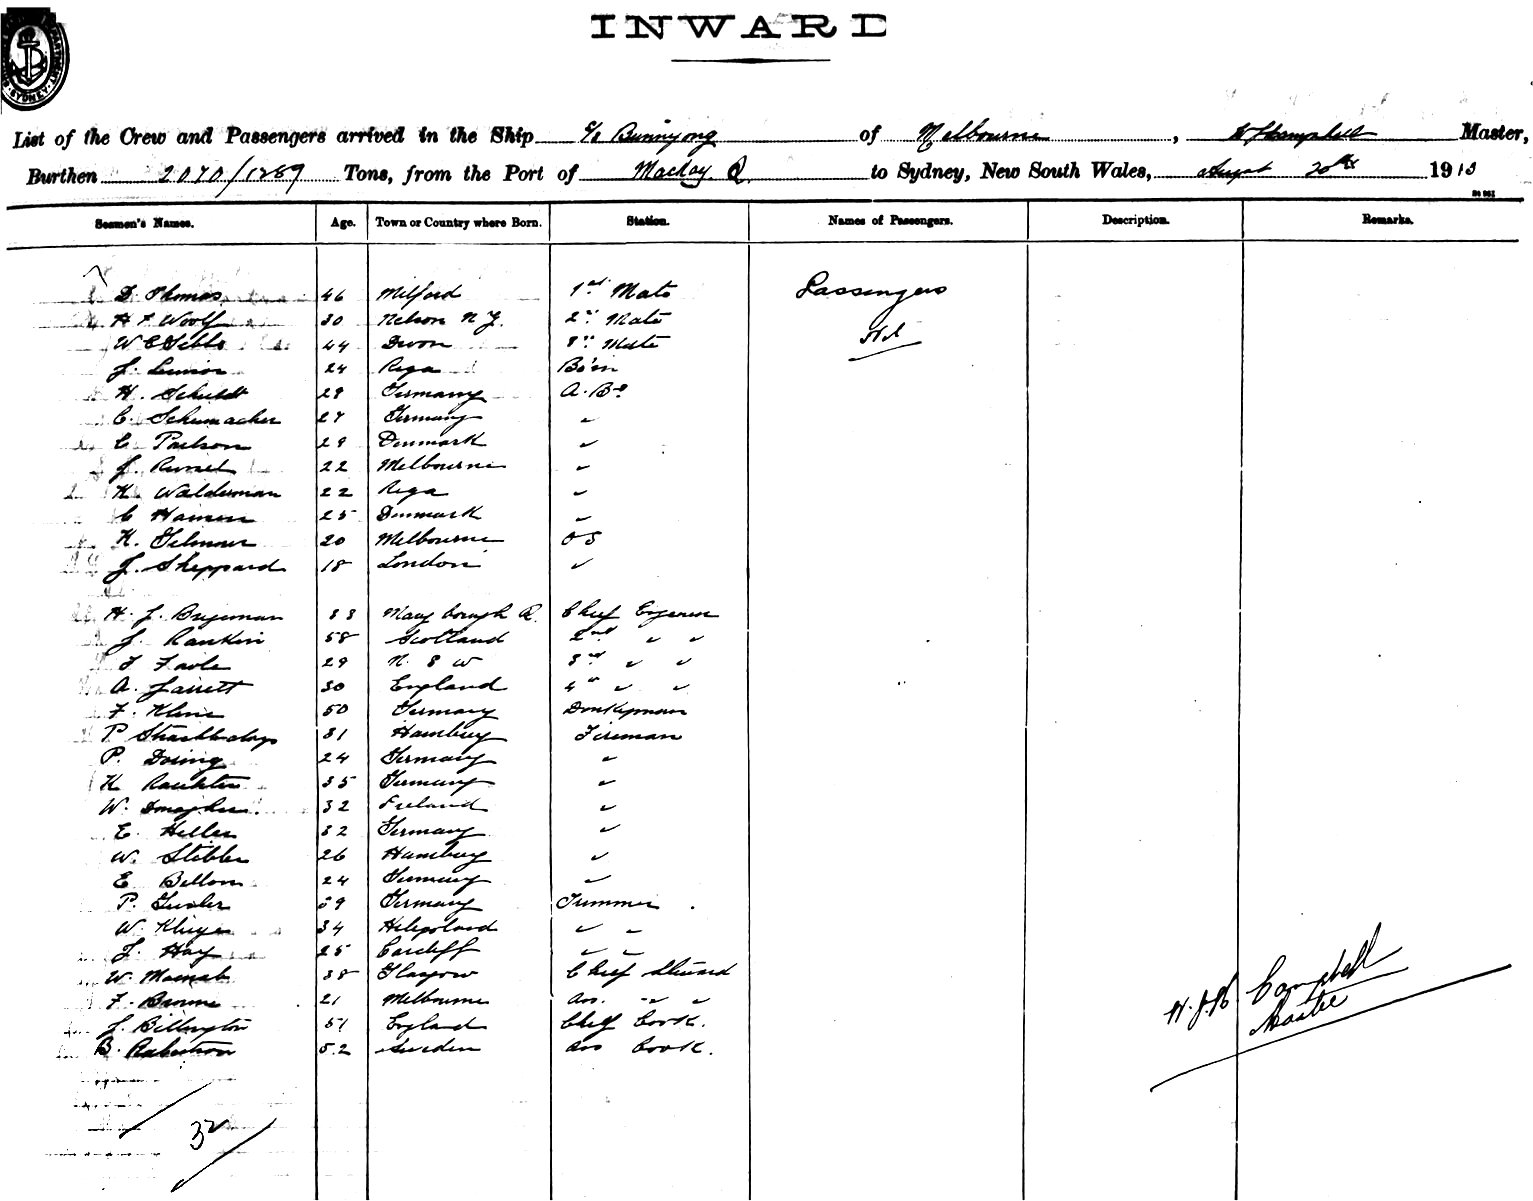 INWARD
List of the Crew and Passengers arrived in the Ship S/S Buninyong of Melbourne, Campbell Master,
Burthen 2070/1289 Tons, from the Port of Mackay Q to Sydney, New South Wales, August 20th 1913
Seamen's Names. Age. Town or Country where Born. Station. Names of Passengers. Description. Remarks.
D. Thomas 46 Milford 1st Mate Passengers
H F Woolf 30 Nelson N Z. 2nd Mate Nil
W C Gibbs 44 Devon Mate
J. 24 Riga Bo'sn
H. Schuldt 29 Germany A. Bs
C. Schumacher 27 Germany "
C Paulson 29 Denmark "
J. Russel 22 Melbourne "
K. Walderman 22 Riga "
C Hansen 25 Denmark "
K. Gilmour 20 Melbourne O S
J. Sheppard 18 London "
H. J. 33 Maryborough Q. Chief Engineer
J. Rankin 58 Scotland 2nd " "
29 N. S W 3rd " "
A. Jarrett 30 England 4th " "
F. Kline 50 Germany Donkeyman
P 31 Hamburg Fireman
P. Doring 24 Germany "
K 35 Germany "
W. 32 Ireland "
E. Heller 32 Germany "
W. Stibler 26 Hamburg "
E 24 Germany "
P. Germany Trimmer
W. 34 Heligoland " "
J. Hay 25 Cardiff " "
W. Macnab 38 Glasgow Chief Steward
F. Browne 21 Melbourne Ass. " "
J. Billington 51 England Chief Cook.
B. Robertson 52 Sweden Ass Cook.
Campbell
Master
32